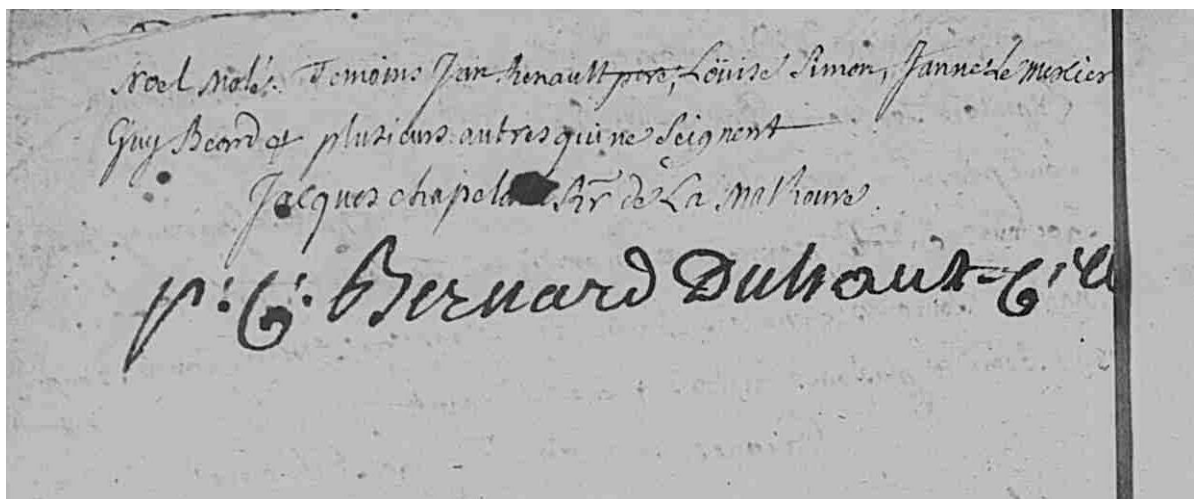 Noel Molé. Temoins Jan Renault pere, Loüise Simon, Janne Le Mercier
Guy Beard et plusieurs autres qui ne seignent
Jacques chapel Sr de La Mathoure.
p: G: Bernard Duhaut-Cill